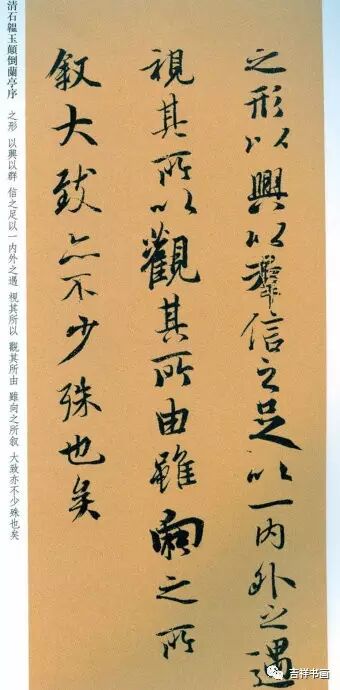 之形以興以羣信之足以一内外之遇
視其所以觀其所由雖向之所
叙大致亦不少殊也矣
清石韞玉顛倒蘭亭序 之形 以興以群 信之足以一内外之遇 視其所以 觀其所由 雖向之所叙 大致亦不少殊也矣
吉祥书画